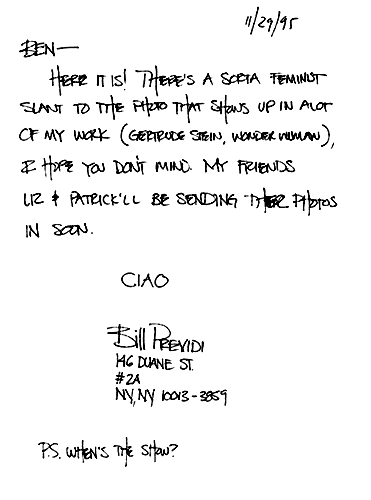 11/29/95
BEN—
HERE IT IS! THERE'S A SORTA FEMINIST
SLANT TO THE PHOTO THAT SHOWS UP IN ALOT
OF MY WORK (GERTRUDE STEIN, WONDER WOMAN),
I HOPE YOU DON'T MIND. MY FRIENDS
LIZ & PATRICK'LL BE SENDING THEIR PHOTOS
IN SOON.
CIAO
Bill PREVIDI
146 DUANE ST.
#2A
NY, NY 10013-3859
P.S. WHEN'S THE SHOW?